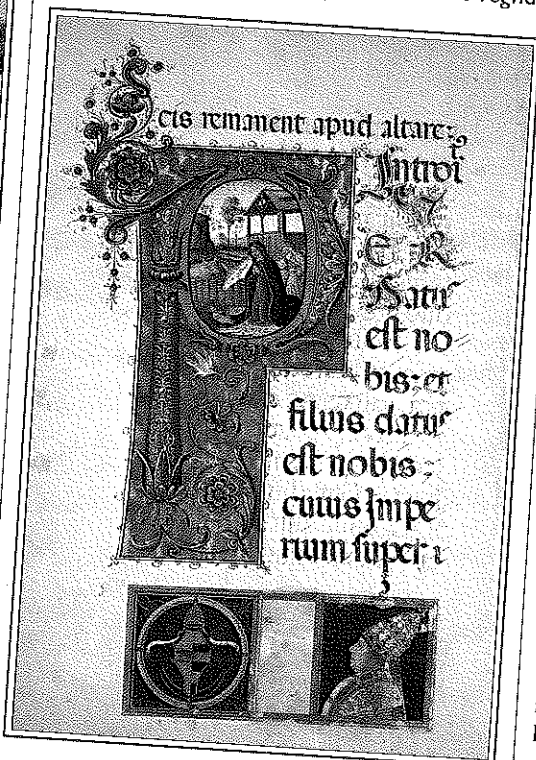 cis remanent apud altare:
Introi
E R
Natus
est no
bis: et
filius datus
est nobis :
cuius Impe
rium super